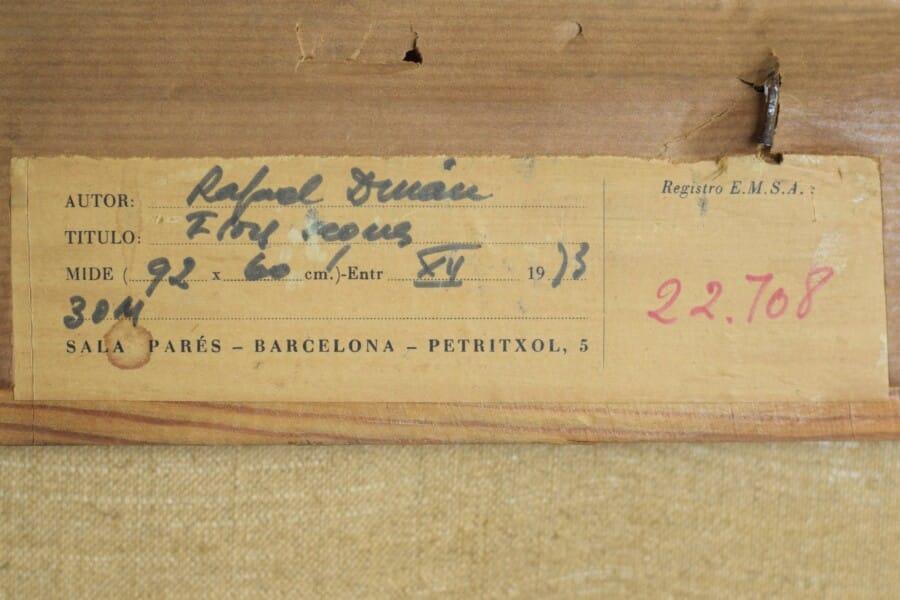 AUTOR: Rafael Durán
TITULO: Flors
MIDE (92 x 60 cm.)-Entr XII 1973
30M
SALA PARÉS – BARCELONA – PETRITXOL, 5
Registro E.M.S.A. :
22.708